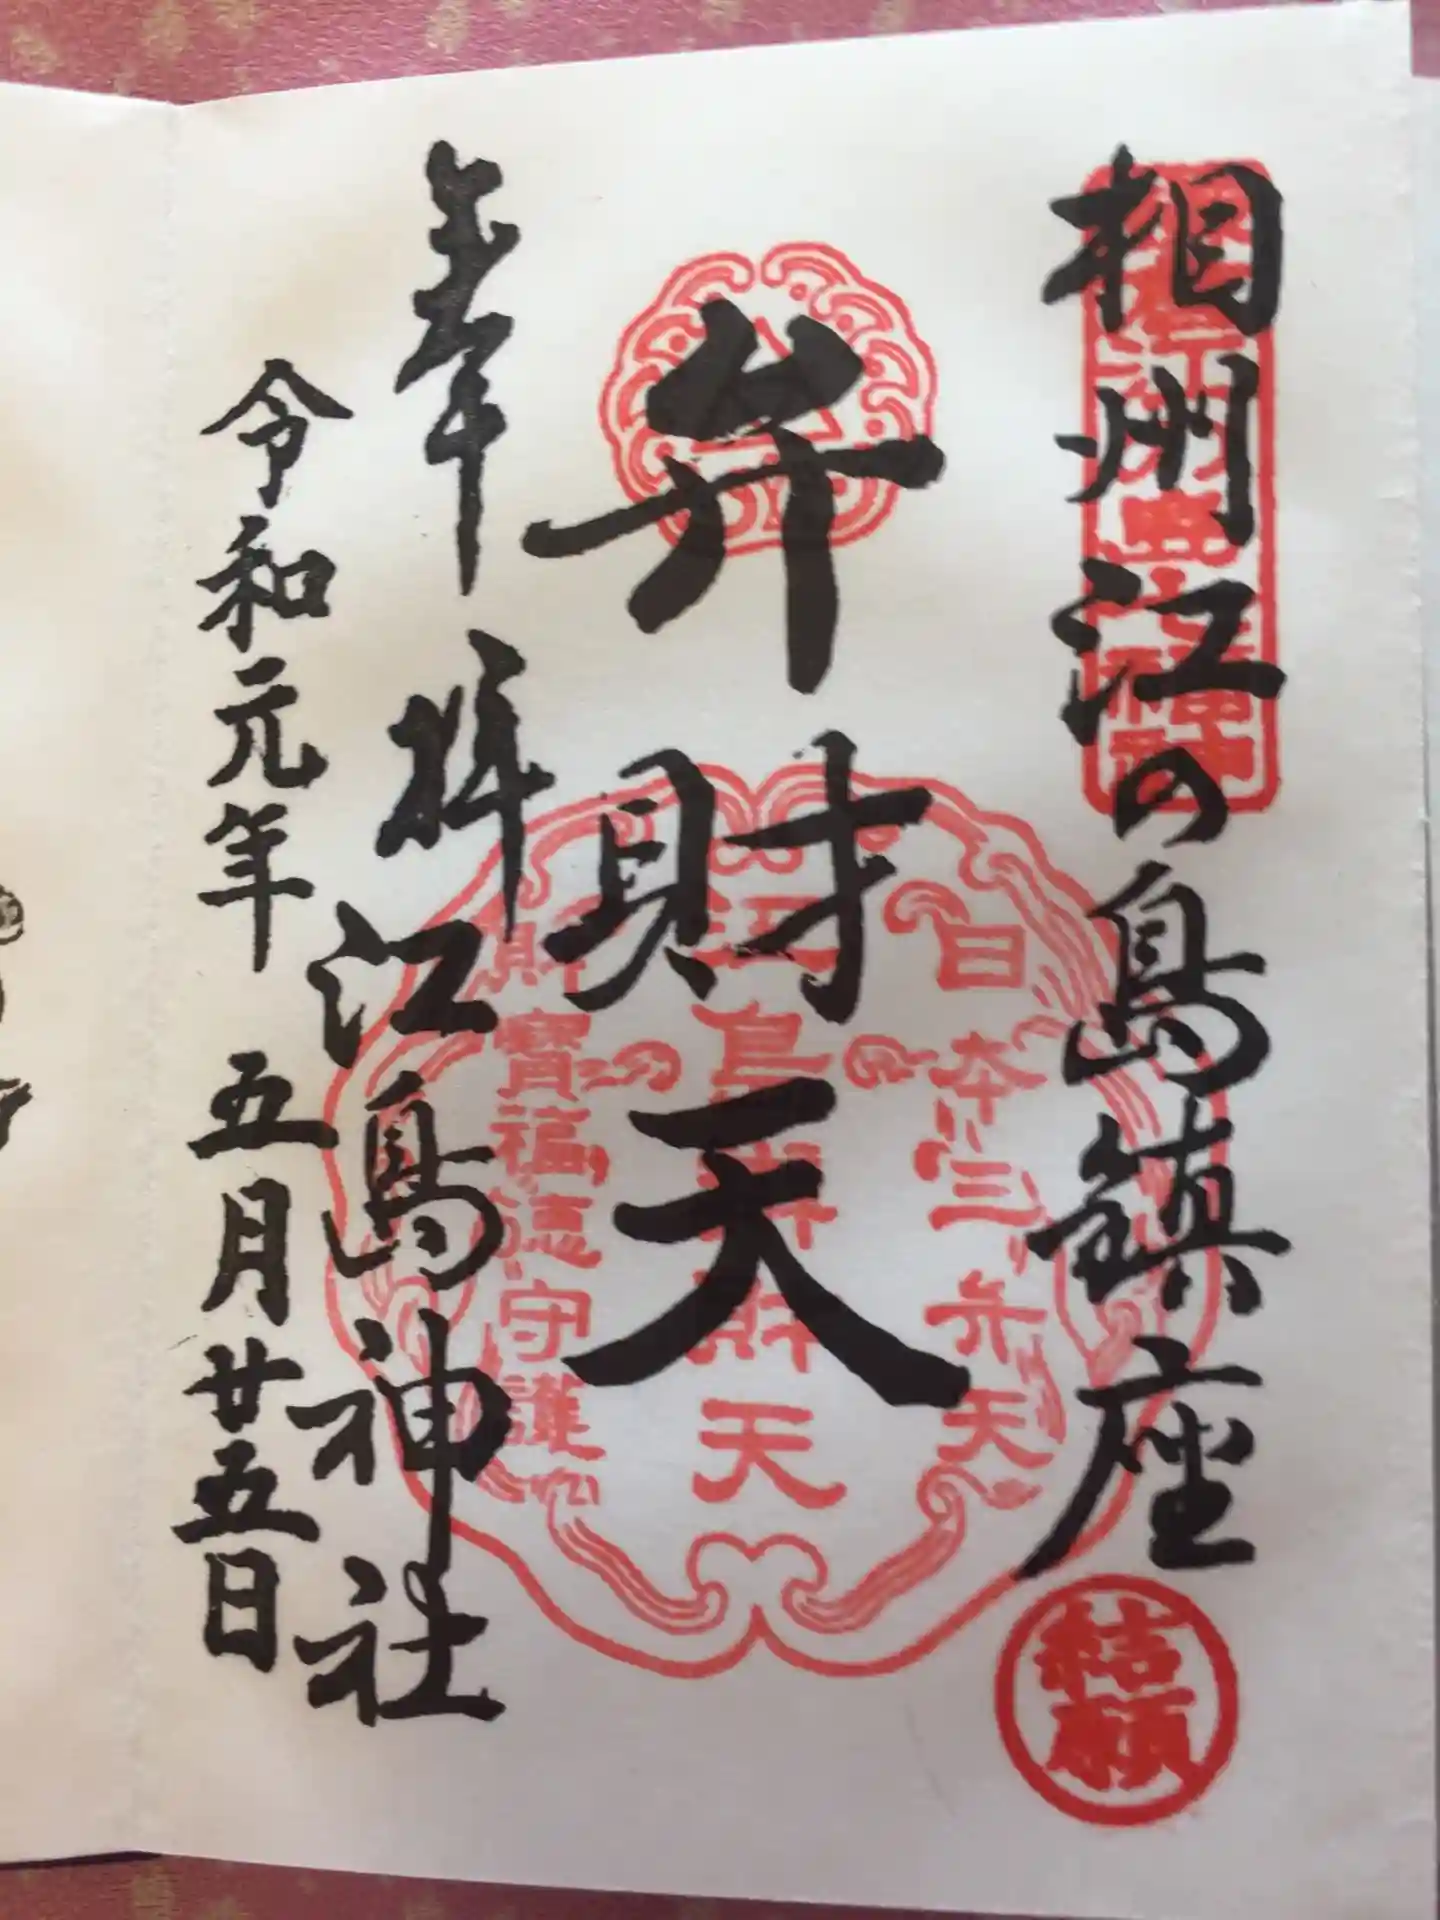 相州江の島鎮座
弁財天
奉拝
江島神社
令和元年 五月廿五日
日本三弁天
江島弁財天
財寶福徳守護
結願